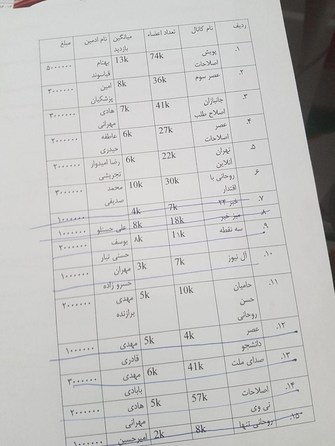 ردیف نام کانال تعداد اعضاء میانگین بازدید نام ادمین مبلغ
۱. پویش اصلاحات 74k 13k بهنام قیاسوند ۵۰۰۰۰۰۰
۲. عصر سوم 36k 8k امین پزشکیان ۳۰۰۰۰۰۰
۳. جانبازان اصلاح طلب 41k 7k هادی مهرانی ۳۰۰۰۰۰۰
۴. عصر اصلاحات 27k 6k عاطفه حیدری ۲۰۰۰۰۰۰
۵. تهران آنلاین 22k 6k رضا امیدوار تجریشی ۲۰۰۰۰۰۰
۶. روحانی با اقتدار 30k 10k محمد صدیقی ۳۰۰۰۰۰۰
۷. خبر ۲۴ 7k 4k ۱۰۰۰۰۰۰
۸. میز خبر 18k 8k علی ۱۰۰۰۰۰۰
۹. سه نقطه 11k 8k یوسف حسنی تبار ۲۰۰۰۰۰۰
۱۰. آل نیوز 7k 3k مهران خسرو زاده ۱۰۰۰۰۰۰
۱۱. حامیان حسن روحانی 10k 5k مهدی برازنده ۲۰۰۰۰۰۰
۱۲. عصر دانشجو 4k 5k مهدی قادری ۱۰۰۰۰۰۰
۱۳. صدای ملت 41k 6k مهدی بابادی ۳۰۰۰۰۰۰
۱۴. اصلاحات تی وی 57k 5k هادی مهرانی ۲۰۰۰۰۰۰
۱۵. روحانی تنها 8k 2k امیرحسین ۱۰۰۰۰۰۰